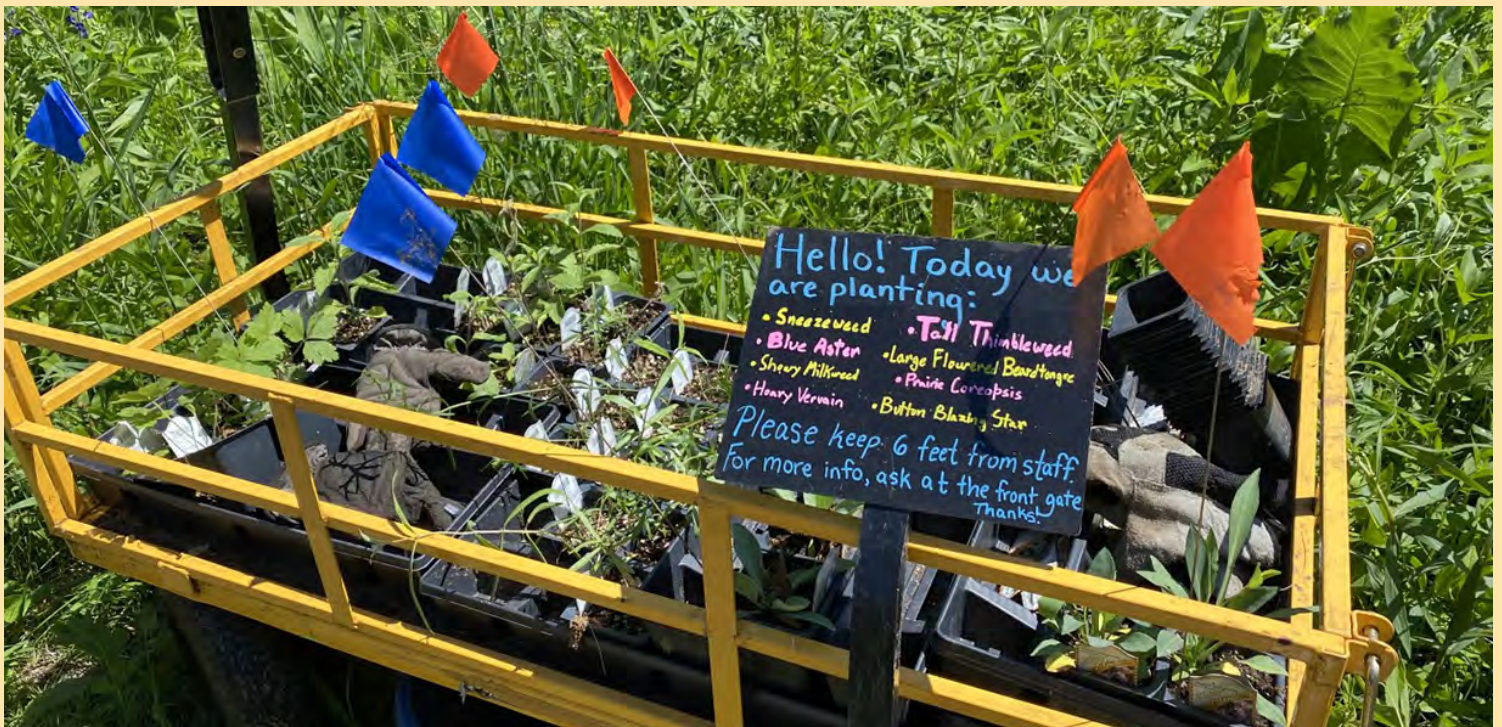 Hello! Today we
are planting:
• Sneezeweed
• Blue Aster
• Showy Milkweed
• Hoary Vervain
• Tall Thimbleweed
• Large Flowered Beardtongue
• Prairie Coreopsis
• Button Blazing Star
Please keep 6 feet from staff.
For more info, ask at the front gate
Thanks!